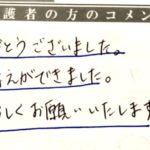 護者の方のコメン
がとうございました。
えができました。
しくお願いいたします